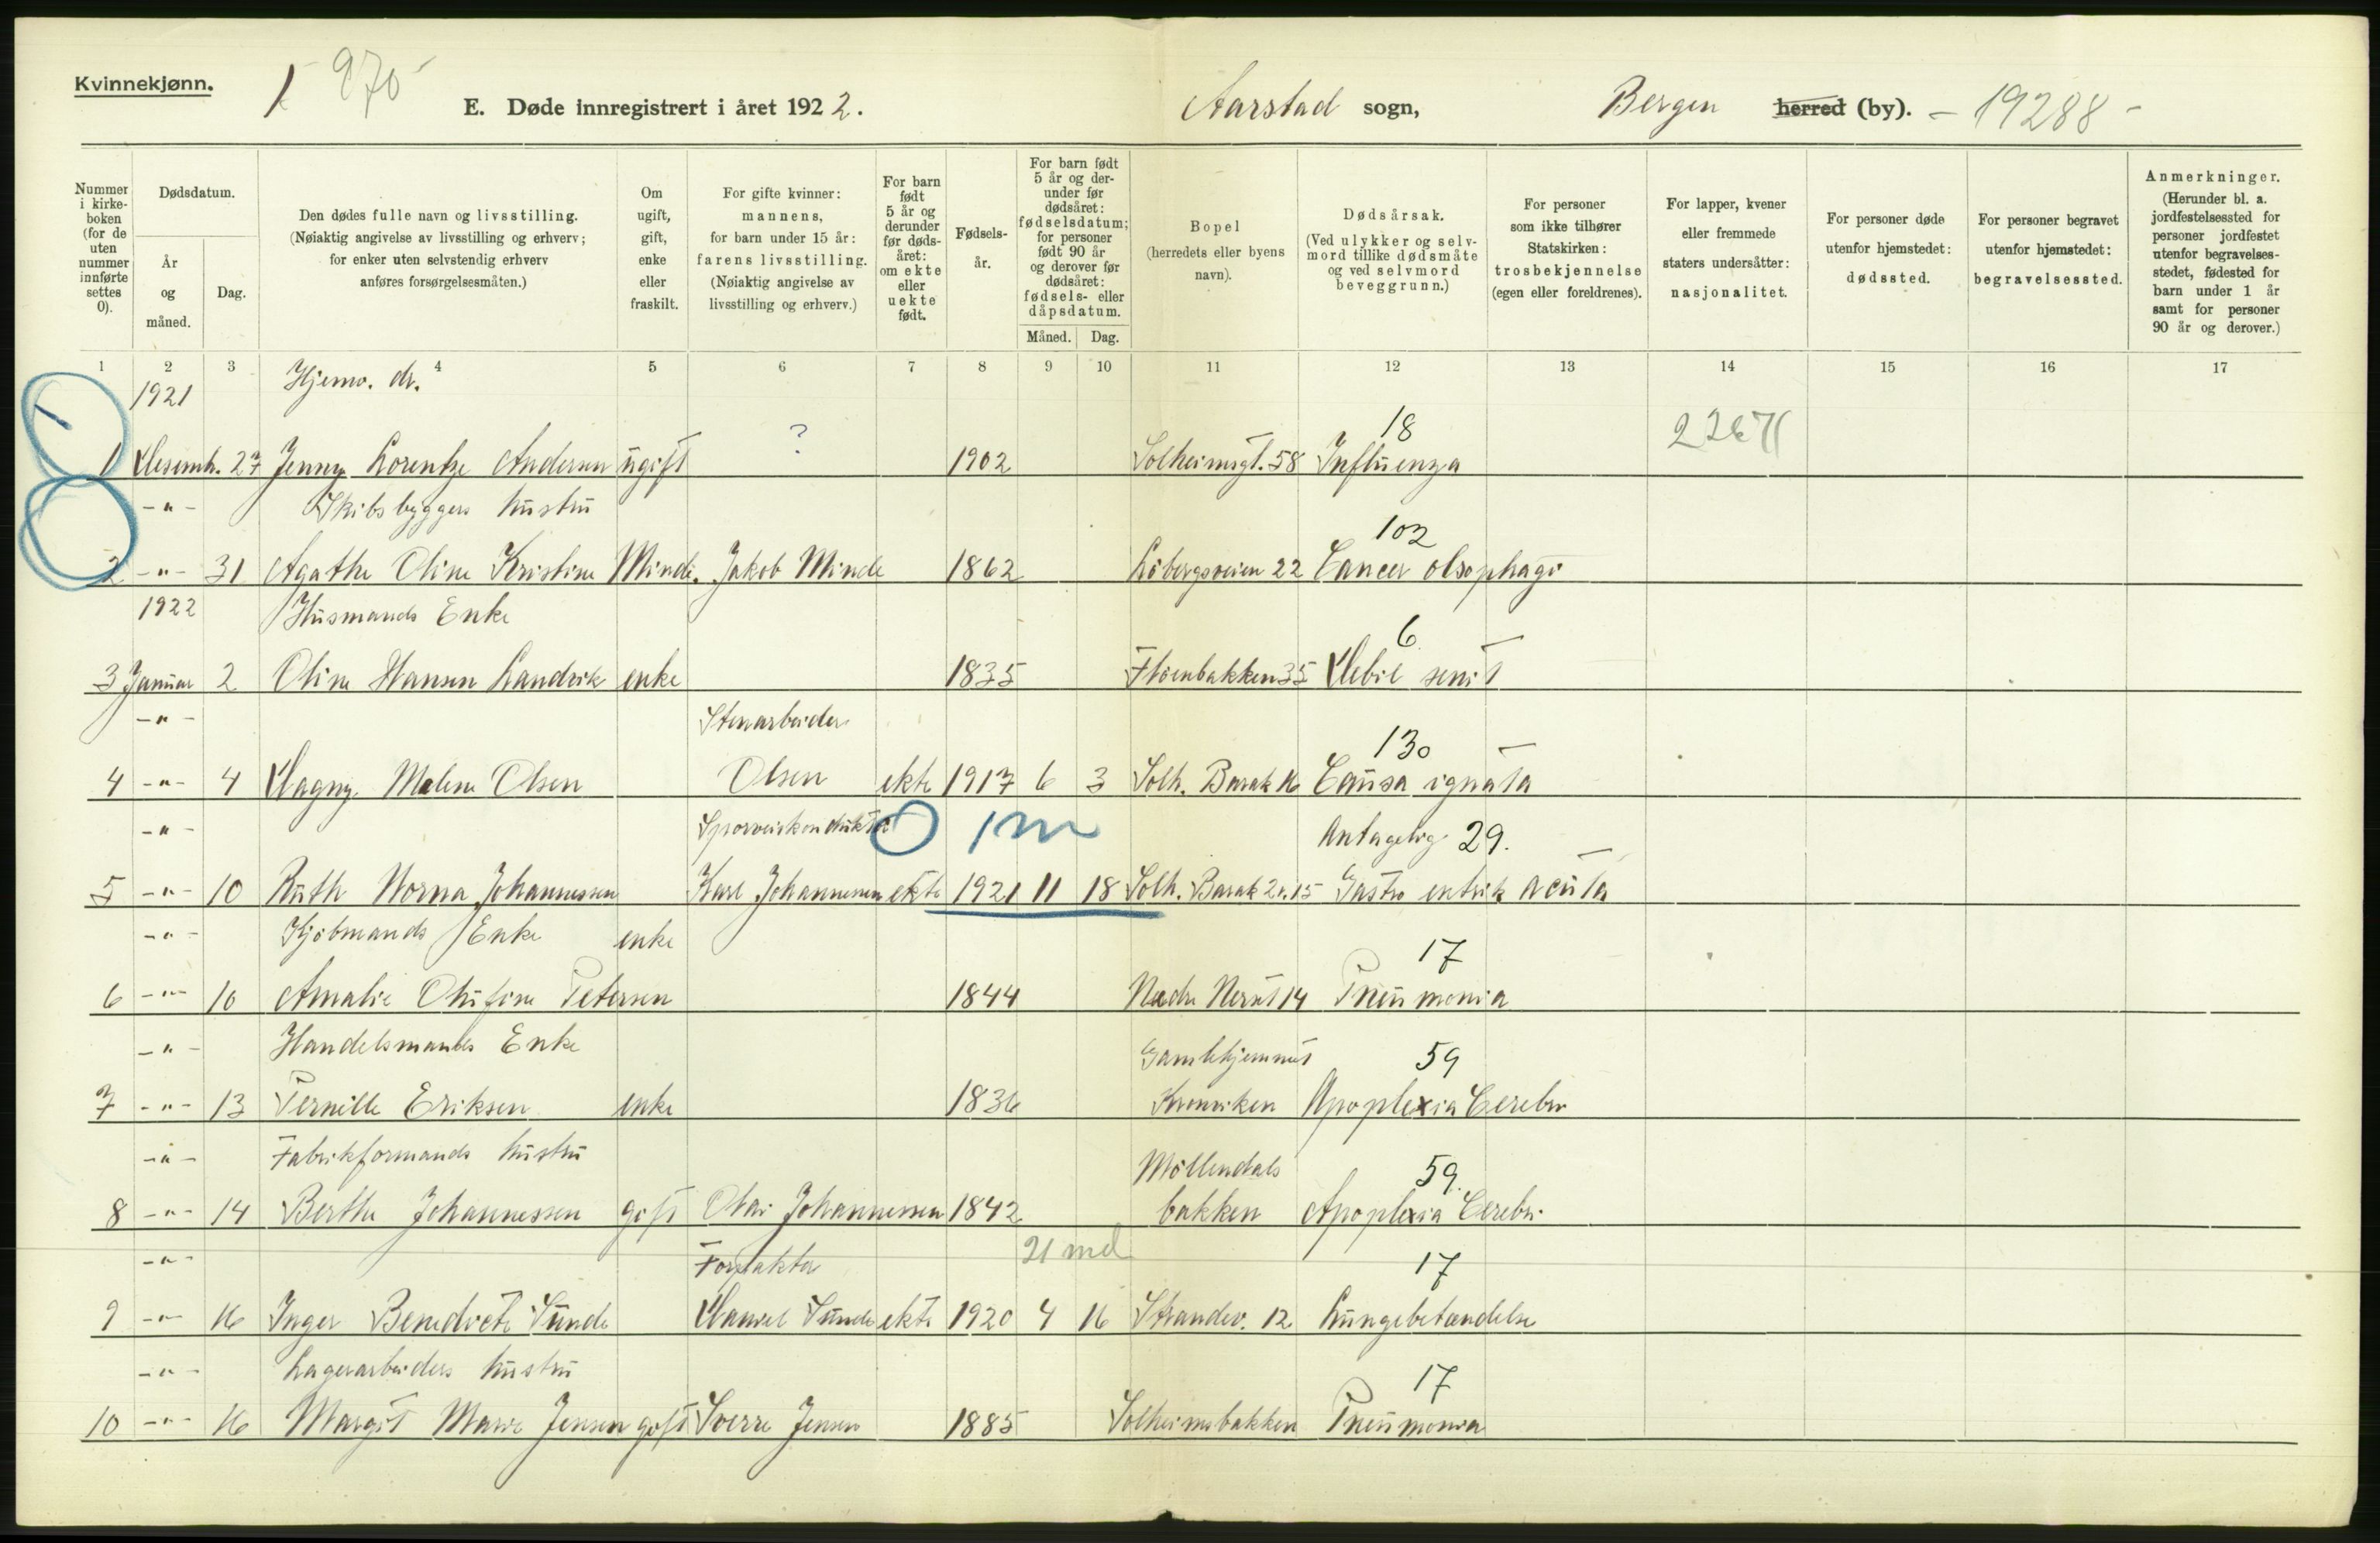 Kvinnekjønn.
1 970
E. Døde innregistrert i året 1922. Aarstad sogn, Bergen herred (by). - 19288 -
Nummer i kirke-boken (for de uten nummer innførte settes 0).
Dødsdatum.
År og måned.
Dag.
Den dødes fulle navn og livsstilling. (Nøiaktig angivelse av livsstilling og erhverv; for enker uten selvstendig erhverv anføres forsørgelsesmåten.)
Om ugift, gift, enke eller fraskilt.
For gifte kvinner: mannens, for barn under 15 år: farens livsstilling. (Nøiaktig angivelse av livsstilling og erhverv.)
For barn født 5 år og derunder før døds-året: om ekte eller uekte født.
Fødsels-år.
For barn født 5 år og der-under før dødsåret: fødselsdatum; for personer født 90 år og derover før dødsåret: fødsels- eller dåpsdatum.
Måned. Dag.
Bopel (herredets eller byens navn).
Dødsårsak. (Ved ulykker og selv-mord tillike dødsmåte og ved selvmord beveggrunn.)
For personer som ikke tilhører Statskirken: trosbekjennelse (egen eller foreldrenes).
For lapper, kvener eller fremmede staters undersåtter: nasjonalitet.
For personer døde utenfor hjemstedet: dødssted.
For personer begravet utenfor hjemstedet: begravelsessted.
Anmerkninger. (Herunder bl. a. jordfestelsessted for personer jordfestet utenfor begravelses-stedet, fødested for barn under 1 år samt for personer 90 år og derover.)
1 2 3 4 5 6 7 8 9 10 11 12 13 14 15 16 17
1921 Hjemv. dr.
18
1 Desemb. 27 Jenny Lorentze Andersen ugift ? 1902 Solheimsgt. 58 Influenza
-"- Skibsbyggers hustru
102
2 -"- 31 Agathe Oline Kristine Minde. Jakob Minde 1862 Løbergsveien 22 Cancer olsophagi
1922 Husmands Enke
6
3 Januar 2 Oline Hansen Landvik enke 1835 Fløenbakken 35 Debil senit
-"- Stenarbeider
130
4 -"- 4 Dagny Malene Olsen Olsen ekte 1917 6 3 Solh. Barak 16 Causa ignata
-"- Sporveiskonduktør 1 m Antagelig 29.
5 -"- 10 Ruth Norna Johannessen Karl Johannessen ekte 1921 11 18 Solh. Barak 2 n. 15 Gastro entrik acuta
-"- Kjøbmands Enke enke
17
6 -"- 10 Amalie Olufine Petersen 1844 Nedre Nerut 14 Pneumonia
-"- Handelsmands Enke Gamlehjemmet 59
7 -"- 13 Pernille Eriksen enke 1836 Apoplexia Cerebri
-"- Fabrikformands hustru Møllendals 59.
8 -"- 14 Berthe Johannessen gift Olai Johannessen 1842 bakken Apoplexia Cerebri
-"- Forpakter 21 md 17
9 -"- 16 Inger Benedicte Sunde Daniel Sunde ekte 1920 4 16 Strandev. 12 Lungebetændelse
-"- Lagerarbeiders hustru 17
10 -"- 16 Margit Marie Jensen gift Sverre Jensen 1885 Solheimsbakken Pneumonia